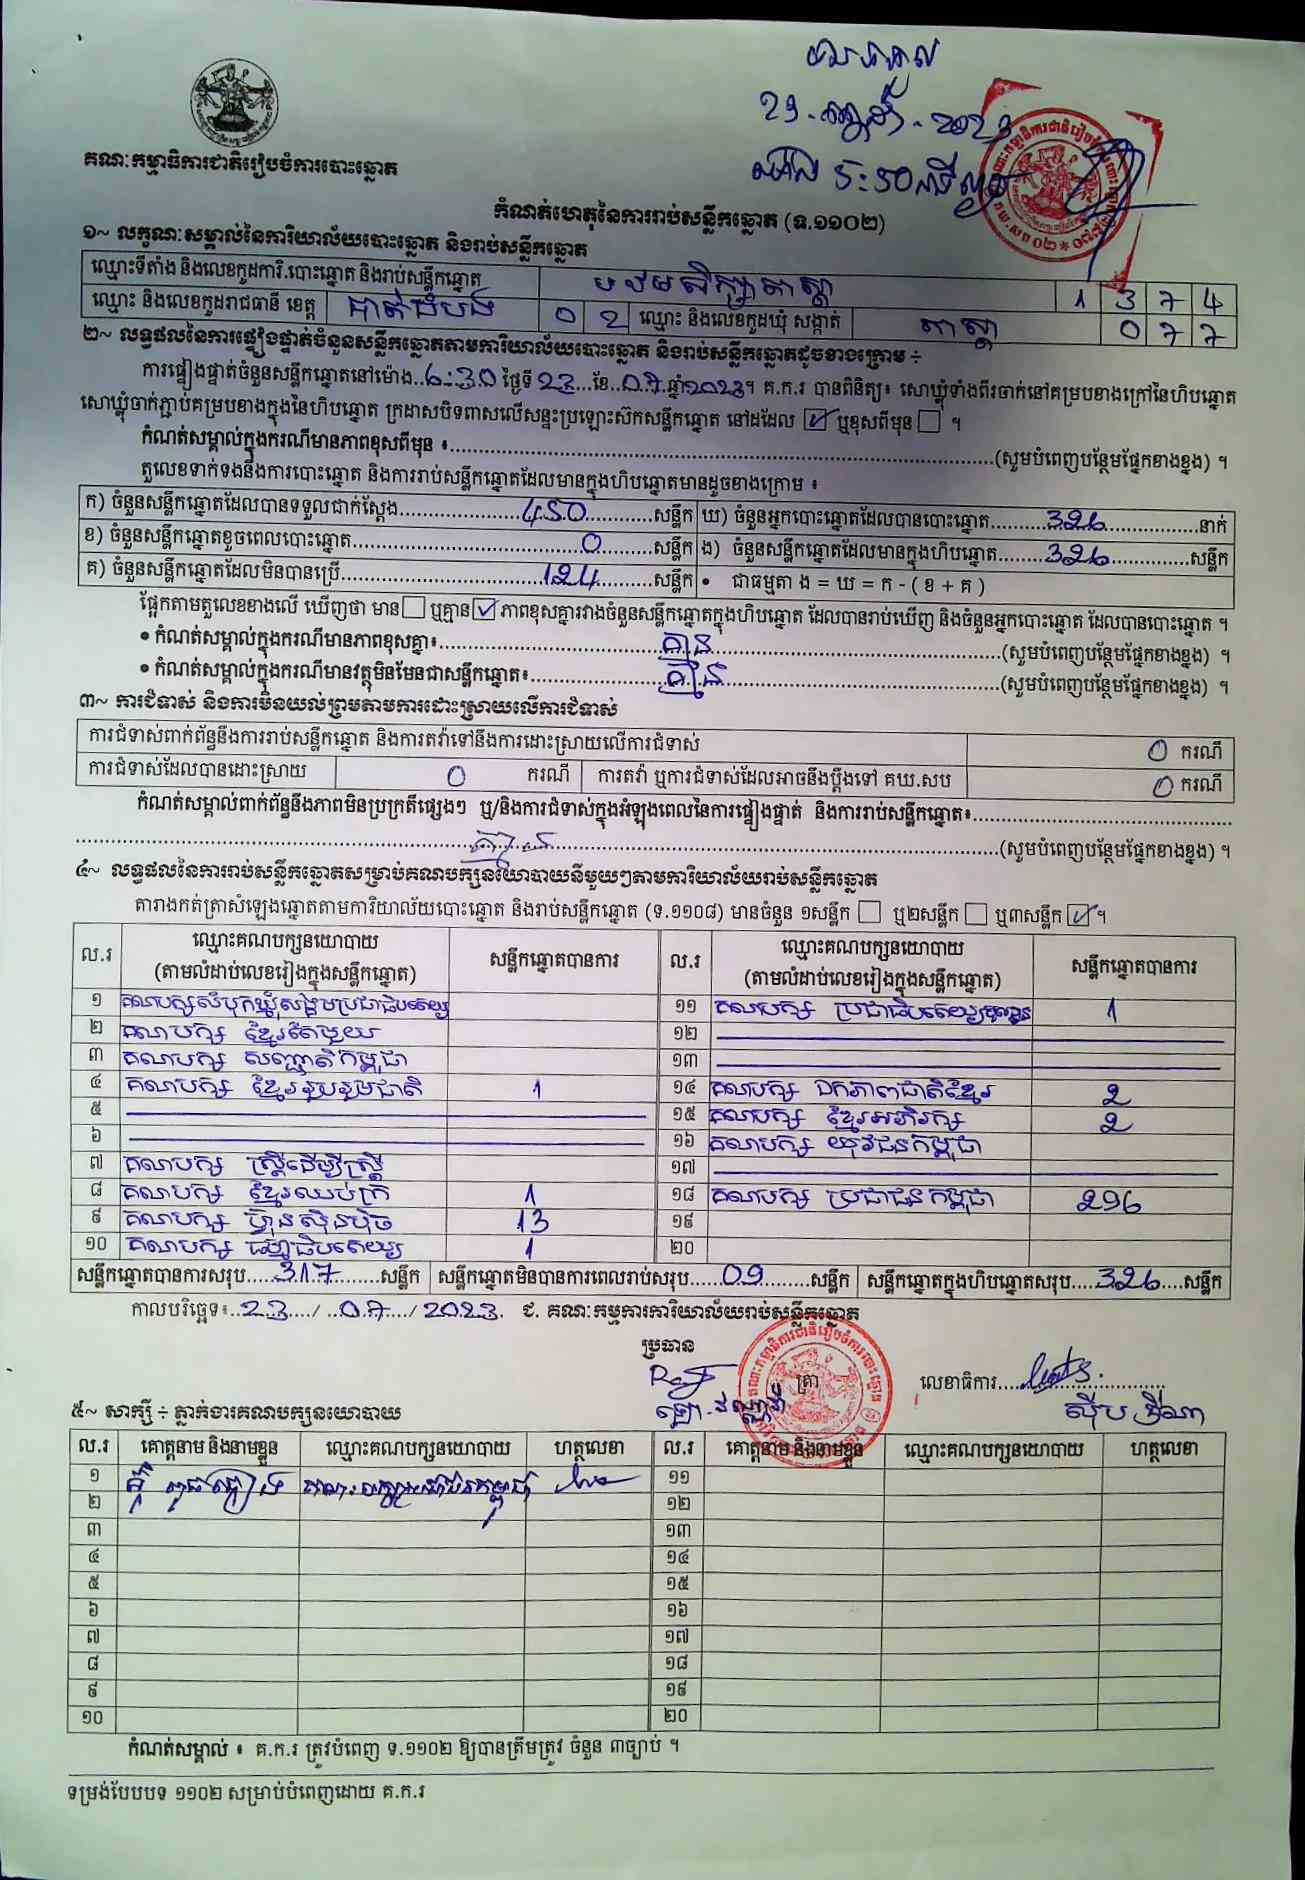 គណៈកម្មាធិការជាតិរៀបចំការបោះឆ្នោត
2023
កំណត់ហេតុនៃការរាប់សន្លឹកឆ្នោត (ទ.១១០២)
១~ លក្ខណៈសម្គាល់នៃការិយាល័យបោះឆ្នោត និងរាប់សន្លឹកឆ្នោត
ឈ្មោះទីតាំង និងលេខកូដការិ.បោះឆ្នោត និងរាប់សន្លឹកឆ្នោត បឋមសិក្សាតាស្តា 1 3 7 4
ឈ្មោះ និងលេខកូដរាជធានី ខេត្ត បាត់ដំបង 0 2 ឈ្មោះ និងលេខកូដឃុំ សង្កាត់ តាស្តា 0 7 7
២~ លទ្ធផលនៃការផ្ទៀងផ្ទាត់ចំនួនសន្លឹកឆ្នោតតាមការិយាល័យបោះឆ្នោត និងរាប់សន្លឹកឆ្នោតដូចខាងក្រោម ÷
ការផ្ទៀងផ្ទាត់ចំនួនសន្លឹកឆ្នោតនៅម៉ោង..6:30 ថ្ងៃទី 23...ខែ..07.ឆ្នាំ2023។ គ.ក.រ បានពិនិត្យ៖ សោឃ្លុំទាំងពីរចាក់នៅគម្របខាងក្រៅនៃហិបឆ្នោត
សោឃ្លុំចាក់ភ្ជាប់គម្របខាងក្នុងនៃហិបឆ្នោត ក្រដាសបិទពាសលើសន្ទះប្រឡោះស៊កសន្លឹកឆ្នោត នៅដដែល ☑ ឬខុសពីមុន ☐ ។
កំណត់សម្គាល់ក្នុងករណីមានភាពខុសពីមុន ៖....................(សូមបំពេញបន្ថែមផ្នែកខាងខ្នង) ។
តួលេខទាក់ទងនឹងការបោះឆ្នោត និងការរាប់សន្លឹកឆ្នោតដែលមានក្នុងហិបឆ្នោតមានដូចខាងក្រោម ៖
ក) ចំនួនសន្លឹកឆ្នោតដែលបានទទួលជាក់ស្តែង..........450..........សន្លឹក ឃ) ចំនួនអ្នកបោះឆ្នោតដែលបានបោះឆ្នោត..........326..........នាក់
ខ) ចំនួនសន្លឹកឆ្នោតខូចពេលបោះឆ្នោត..........0..........សន្លឹក ង) ចំនួនសន្លឹកឆ្នោតដែលមានក្នុងហិបឆ្នោត..........326..........សន្លឹក
គ) ចំនួនសន្លឹកឆ្នោតដែលមិនបានប្រើ..........124..........សន្លឹក • ជាធម្មតា ង = ឃ = ក - ( ខ + គ )
ផ្អែកតាមតួលេខខាងលើ ឃើញថា មាន ☐ ឬគ្មាន ☑ ភាពខុសគ្នារវាងចំនួនសន្លឹកឆ្នោតក្នុងហិបឆ្នោត ដែលបានរាប់ឃើញ និងចំនួនអ្នកបោះឆ្នោត ដែលបានបោះឆ្នោត ។
• កំណត់សម្គាល់ក្នុងករណីមានភាពខុសគ្នា៖..........គ្មាន..........(សូមបំពេញបន្ថែមផ្នែកខាងខ្នង) ។
• កំណត់សម្គាល់ក្នុងករណីមានវត្ថុមិនមែនជាសន្លឹកឆ្នោត៖..........គ្មាន..........(សូមបំពេញបន្ថែមផ្នែកខាងខ្នង) ។
៣~ ការជំទាស់ និងការមិនយល់ព្រមតាមការដោះស្រាយលើការជំទាស់
ការជំទាស់ពាក់ព័ន្ធនឹងការរាប់សន្លឹកឆ្នោត និងការតវ៉ាទៅនឹងការដោះស្រាយលើការជំទាស់ 0 ករណី
ការជំទាស់ដែលបានដោះស្រាយ 0 ករណី ការតវ៉ា ឬការជំទាស់ដែលអាចនឹងប្តឹងទៅ គឃ.សប 0 ករណី
កំណត់សម្គាល់ពាក់ព័ន្ធនឹងភាពមិនប្រក្រតីផ្សេងៗ ឬ/និងការជំទាស់ក្នុងអំឡុងពេលនៃការផ្ទៀងផ្ទាត់ និងការរាប់សន្លឹកឆ្នោត៖..........
..........គ្មាន..........(សូមបំពេញបន្ថែមផ្នែកខាងខ្នង) ។
៤~ លទ្ធផលនៃការរាប់សន្លឹកឆ្នោតសម្រាប់គណបក្សនយោបាយនីមួយៗតាមការិយាល័យរាប់សន្លឹកឆ្នោត
តារាងកត់ត្រាសំឡេងឆ្នោតតាមការិយាល័យបោះឆ្នោត និងរាប់សន្លឹកឆ្នោត (ទ.១១០៨) មានចំនួន ១សន្លឹក ☐ ឬ២សន្លឹក ☐ ឬ៣សន្លឹក ☑ ។
ល.រ ឈ្មោះគណបក្សនយោបាយ (តាមលំដាប់លេខរៀងក្នុងសន្លឹកឆ្នោត) សន្លឹកឆ្នោតបានការ ល.រ ឈ្មោះគណបក្សនយោបាយ (តាមលំដាប់លេខរៀងក្នុងសន្លឹកឆ្នោត) សន្លឹកឆ្នោតបានការ
១ គណបក្សសំបុកឃ្មុំសង្គមប្រជាធិបតេយ្យ ១១ គណបក្ស ប្រជាធិបតេយ្យមូលដ្ឋាន 1
២ គណបក្ស ខ្មែរតែមួយ ១២
៣ គណបក្ស សញ្ជាតិកម្ពុជា ១៣
៤ គណបក្ស ខ្មែររួបរួមជាតិ 1 ១៤ គណបក្ស ឯកភាពជាតិខ្មែរ 2
៥ ១៥ គណបក្ស ខ្មែរអភិរក្ស 2
៦ ១៦ គណបក្ស យុវជនកម្ពុជា
៧ គណបក្ស ស្ត្រីដើម្បីស្ត្រី ១៧
៨ គណបក្ស ខ្មែរឈប់ក្រ 1 ១៨ គណបក្ស ប្រជាជនកម្ពុជា 296
៩ គណបក្ស ហ៊្វុនស៊ិនប៉ិច 13 ១៩
១០ គណបក្ស ធម្មាធិបតេយ្យ 1 ២០
សន្លឹកឆ្នោតបានការសរុប.....317........សន្លឹក សន្លឹកឆ្នោតមិនបានការពេលរាប់សរុប.....09........សន្លឹក សន្លឹកឆ្នោតក្នុងហិបឆ្នោតសរុប....326....សន្លឹក
កាលបរិច្ឆេទ៖..23..../..07..../ 2023. ជ. គណៈកម្មការការិយាល័យរាប់សន្លឹកឆ្នោត
ប្រធាន
ត្រា
លេខាធិការ..........
៥~ សាក្សី ÷ ភ្នាក់ងារគណបក្សនយោបាយ
ល.រ គោត្តនាម និងនាមខ្លួន ឈ្មោះគណបក្សនយោបាយ ហត្ថលេខា ល.រ គោត្តនាម និងនាមខ្លួន ឈ្មោះគណបក្សនយោបាយ ហត្ថលេខា
១ គណបក្សប្រជាជនកម្ពុជា ១១
២ ១២
៣ ១៣
៤ ១៤
៥ ១៥
៦ ១៦
៧ ១៧
៨ ១៨
៩ ១៩
១០ ២០
កំណត់សម្គាល់ ៖ គ.ក.រ ត្រូវបំពេញ ទ.១១០២ ឱ្យបានត្រឹមត្រូវ ចំនួន ៣ច្បាប់ ។
ទម្រង់បែបបទ ១១០២ សម្រាប់បំពេញដោយ គ.ក.រ